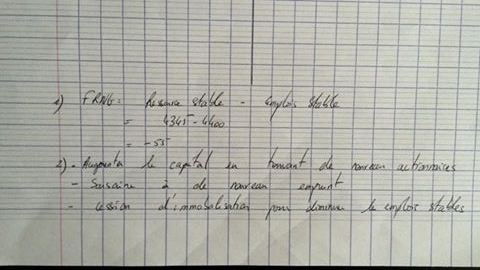 1) FRNG = Ressource stable - emplois stable
= 4345 - 4400
= -55
2) - Augmenter le capital en trouvant de nouveau actionnaires
- Souscrire à de nouveau emprunt
- cession d'immobilisation pour diminuer le emplois stables